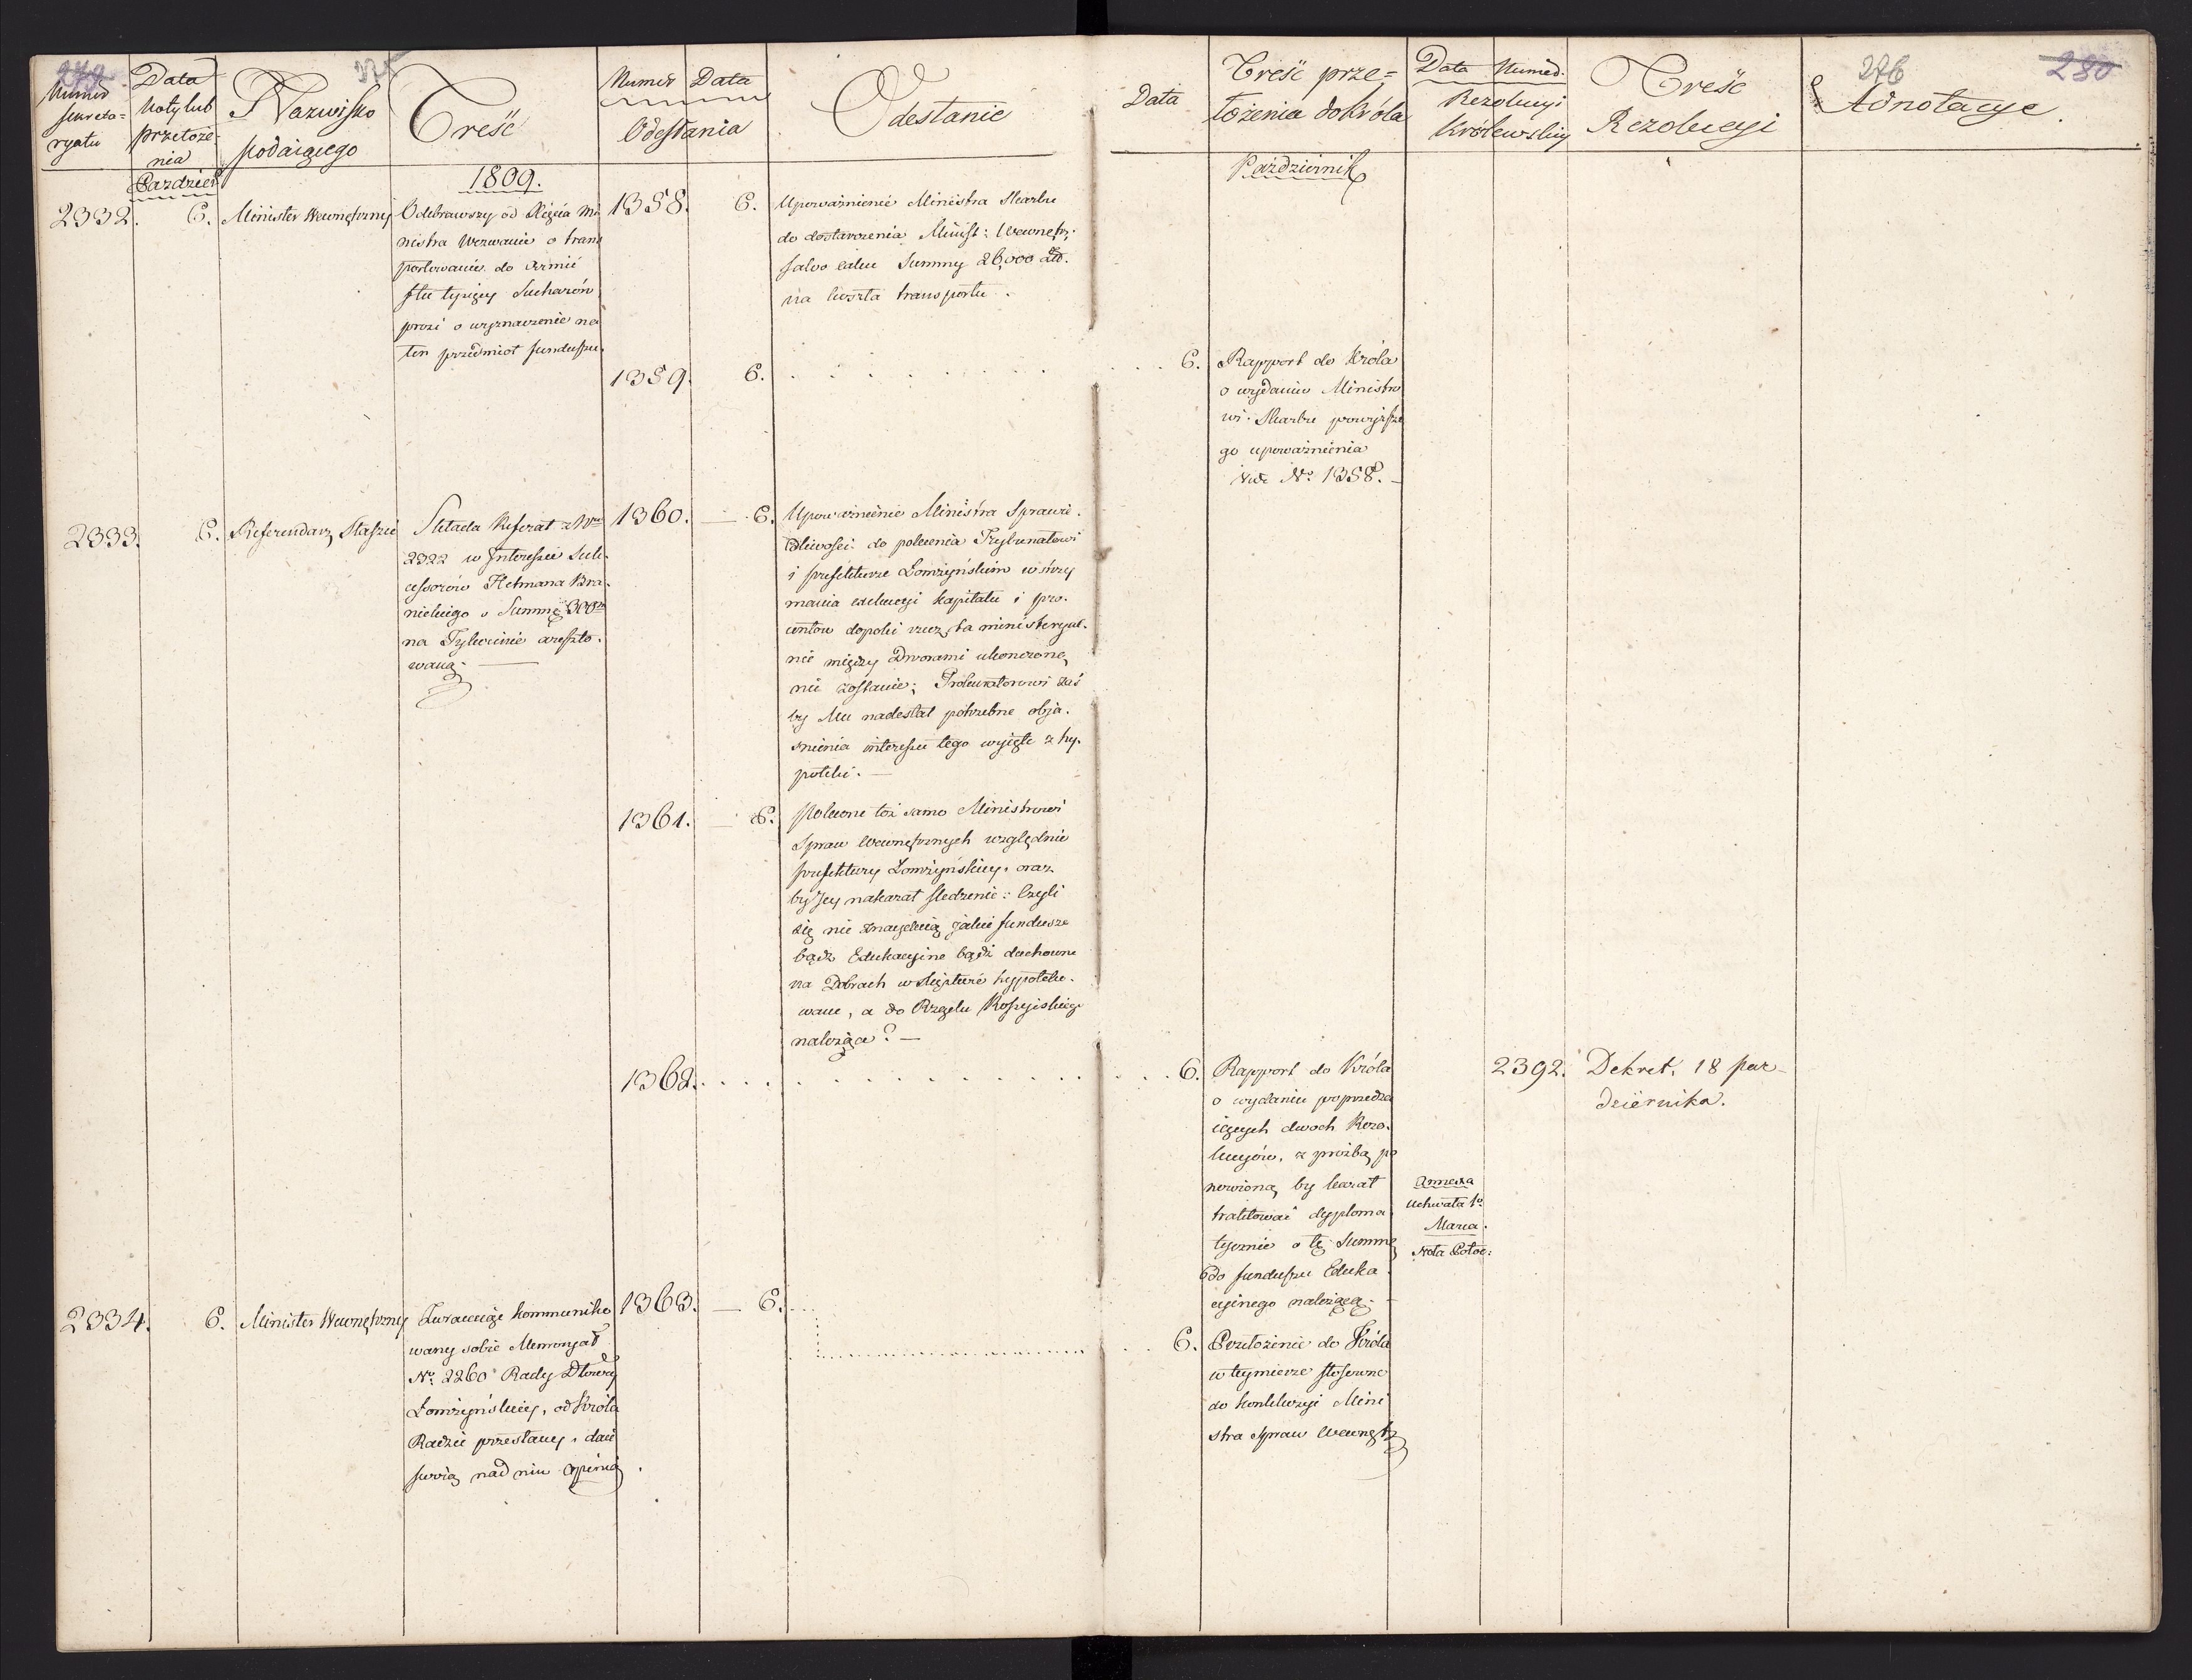 279
275
Numer
sekreta=
ryatu
Data
Noty lub
przełoże-
nia
Nazwisko
podaiącego
Treść
Numer Data
Odesłania
Odesłanie
Data
Treść prze=
łożenia do Króla
Data Numer
Rezolucyi
Królewskiey
Treść
Rezolucyi
276
280
Adnotacye.
Pazdzier
1809.
Październik
2332.
6.
Minister Wewnętrzny
Odebrawszy od Xięcia Mi
nistra Wezwanie o trans
portowanie do Armii
stu tysięcy Sucharów
prosi o wyznaczenie na
ten przedmiot funduszu.
1358.
6.
Upoważnienie Ministra Skarbu
do dostarczenia Minist: Wewnętr:
salvo calcu Summy 26,000 złł.
na koszta transportu.
1359.
6.
6.
Rapport do Króla
o wydaniu Ministro
wi Skarbu powyższe
go upoważnienia
vide No. 1358.
2333.
6.
Referendarz Staszic
Składa Referat z Nru
2322 w Interessie Suk-
cessorów Hetmana Bra-
nickiego o Summę 300m
na Tykocinie areszto-
waną.
1360.
6.
Upoważnienie Ministra Sprawie-
dliwości do polecenia Trybunałowi
i prefekturze Łomżyńskim wstrzy
mania exekucyi kapitału i pro-
centów dopóki rzecz ta ministeryal-
nie między Dworami ukonczoną
nie zostanie; Prokuratorowi zaś
by Mu nadesłał potrzebne obja-
śnienia interessu tego wyięte z hy-
poteki.
1361.
6.
Polecone toż samo Ministrowi
Spraw Wewnętrznych względnie
prefektury Łomżyńskiey, oraz
by Jey nakazał śledzenie: Czyli
się nie znayduią jakie fundusze
bądz Edukacyine bądz duchowne
na Dobrach w Xięstwie hypoteko-
wane, a do Rządu Rossyiskiego
należące?
1362.
6.
Rapport do Króla
o wydaniu poprzedza
iących dwoch Rezo-
lucyów, z prozbą po
nowioną by kazał
traktować dyploma
tycznie o tę Summę
do funduszu Eduka
cyinego należącą.
Annexa
Uchwała 1o
Marca.
Nota Potoc:
2392.
Dekret. 18 paz-
dziernika.
2334.
6.
Minister Wewnętrzny
Zwracaiąc kommuniko
wany sobie Memoryał
No. 2260 Rady Dtowey
Łomżyńskiey, od Króla
Radzie przesłany, daie
swoią nad nim opinią.
1363.
6.
6.
Przełożenie do Króla
w tey mierze stosowne
do konkluzyi Mini
stra Spraw Wewnętrz